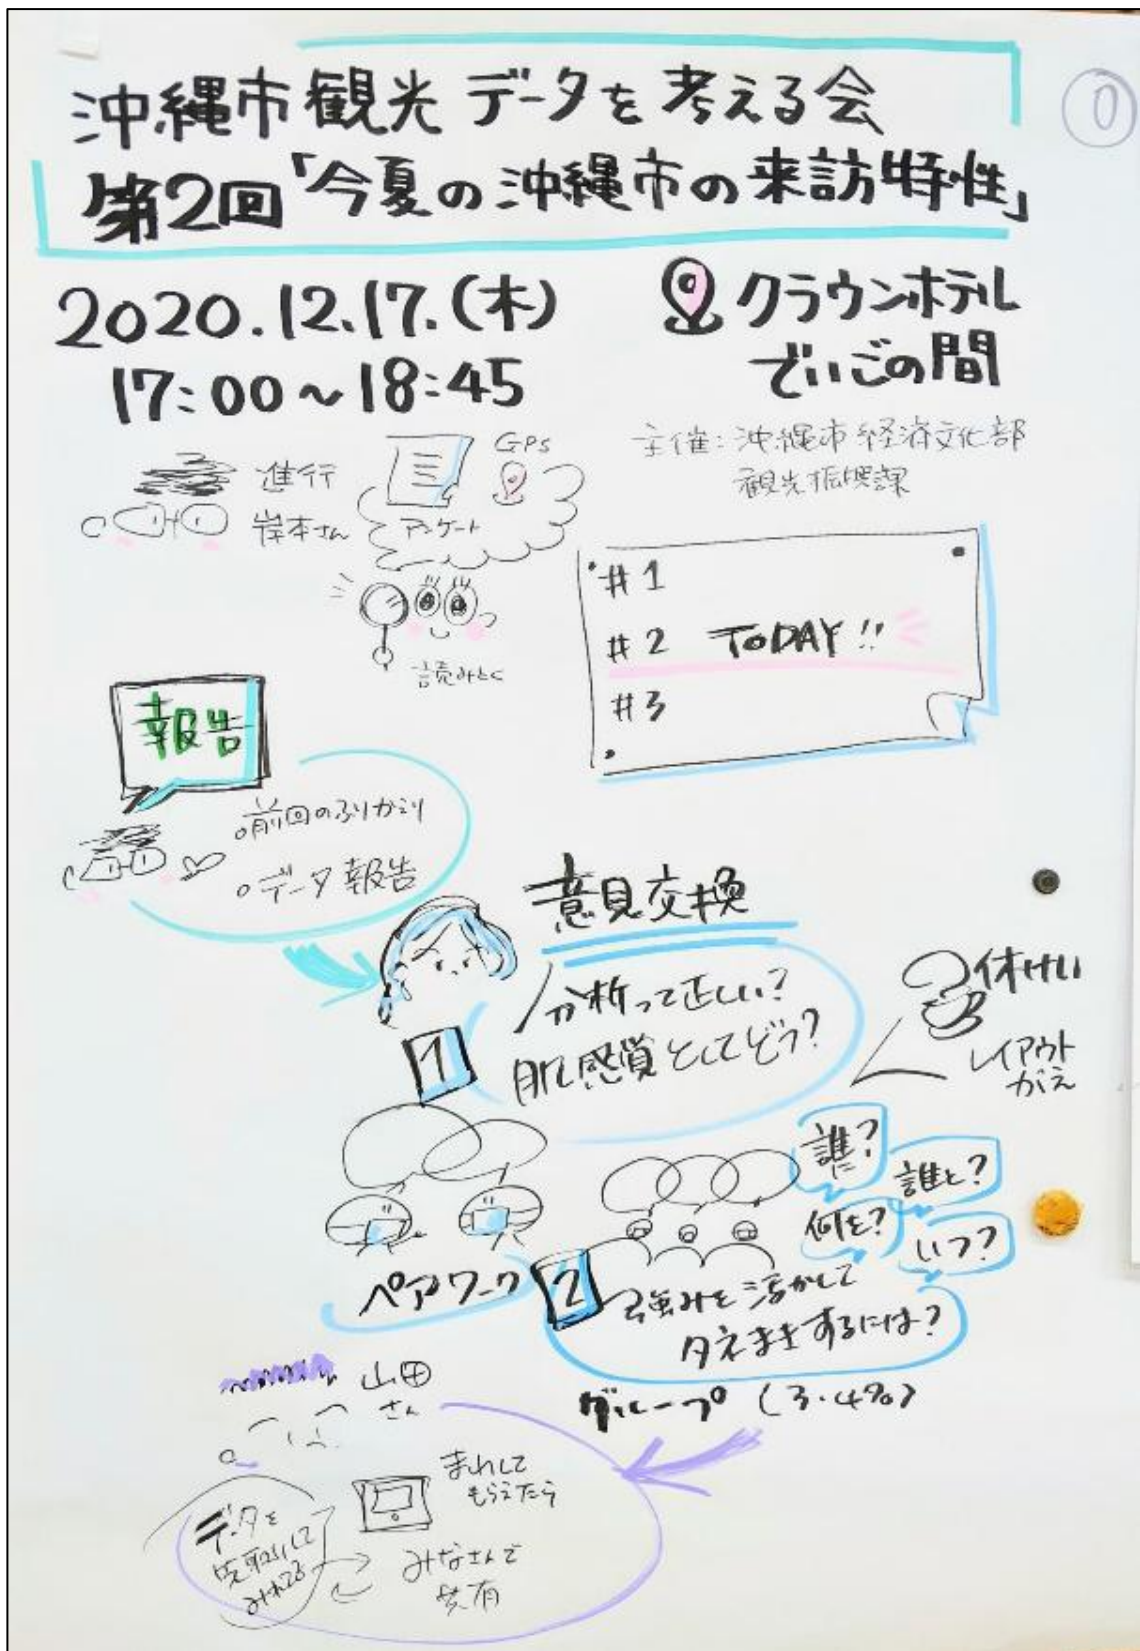 沖縄市観光データを考える会
第2回「今夏の沖縄市の来訪特性」
0
2020.12.17.(木)
17:00～18:45
クラウンホテル
でいごの間
主催:沖縄市経済文化部
観光振興課
進行
岸本さん
アンケート
GPS
読みとく
#1
#2 TODAY!!
#3
報告
○前回のふりかえり
○データ報告
意見交換
1
分析って正しい?
肌感覚としてどう?
休けい
レイアウト
がえ
ペアワーク
誰に?
誰と?
何を?
いつ?
2
強みを活かして
タネまきするには?
グループ(3・4名)
山田
さん
データを
もらえたら
みなさんで
共有